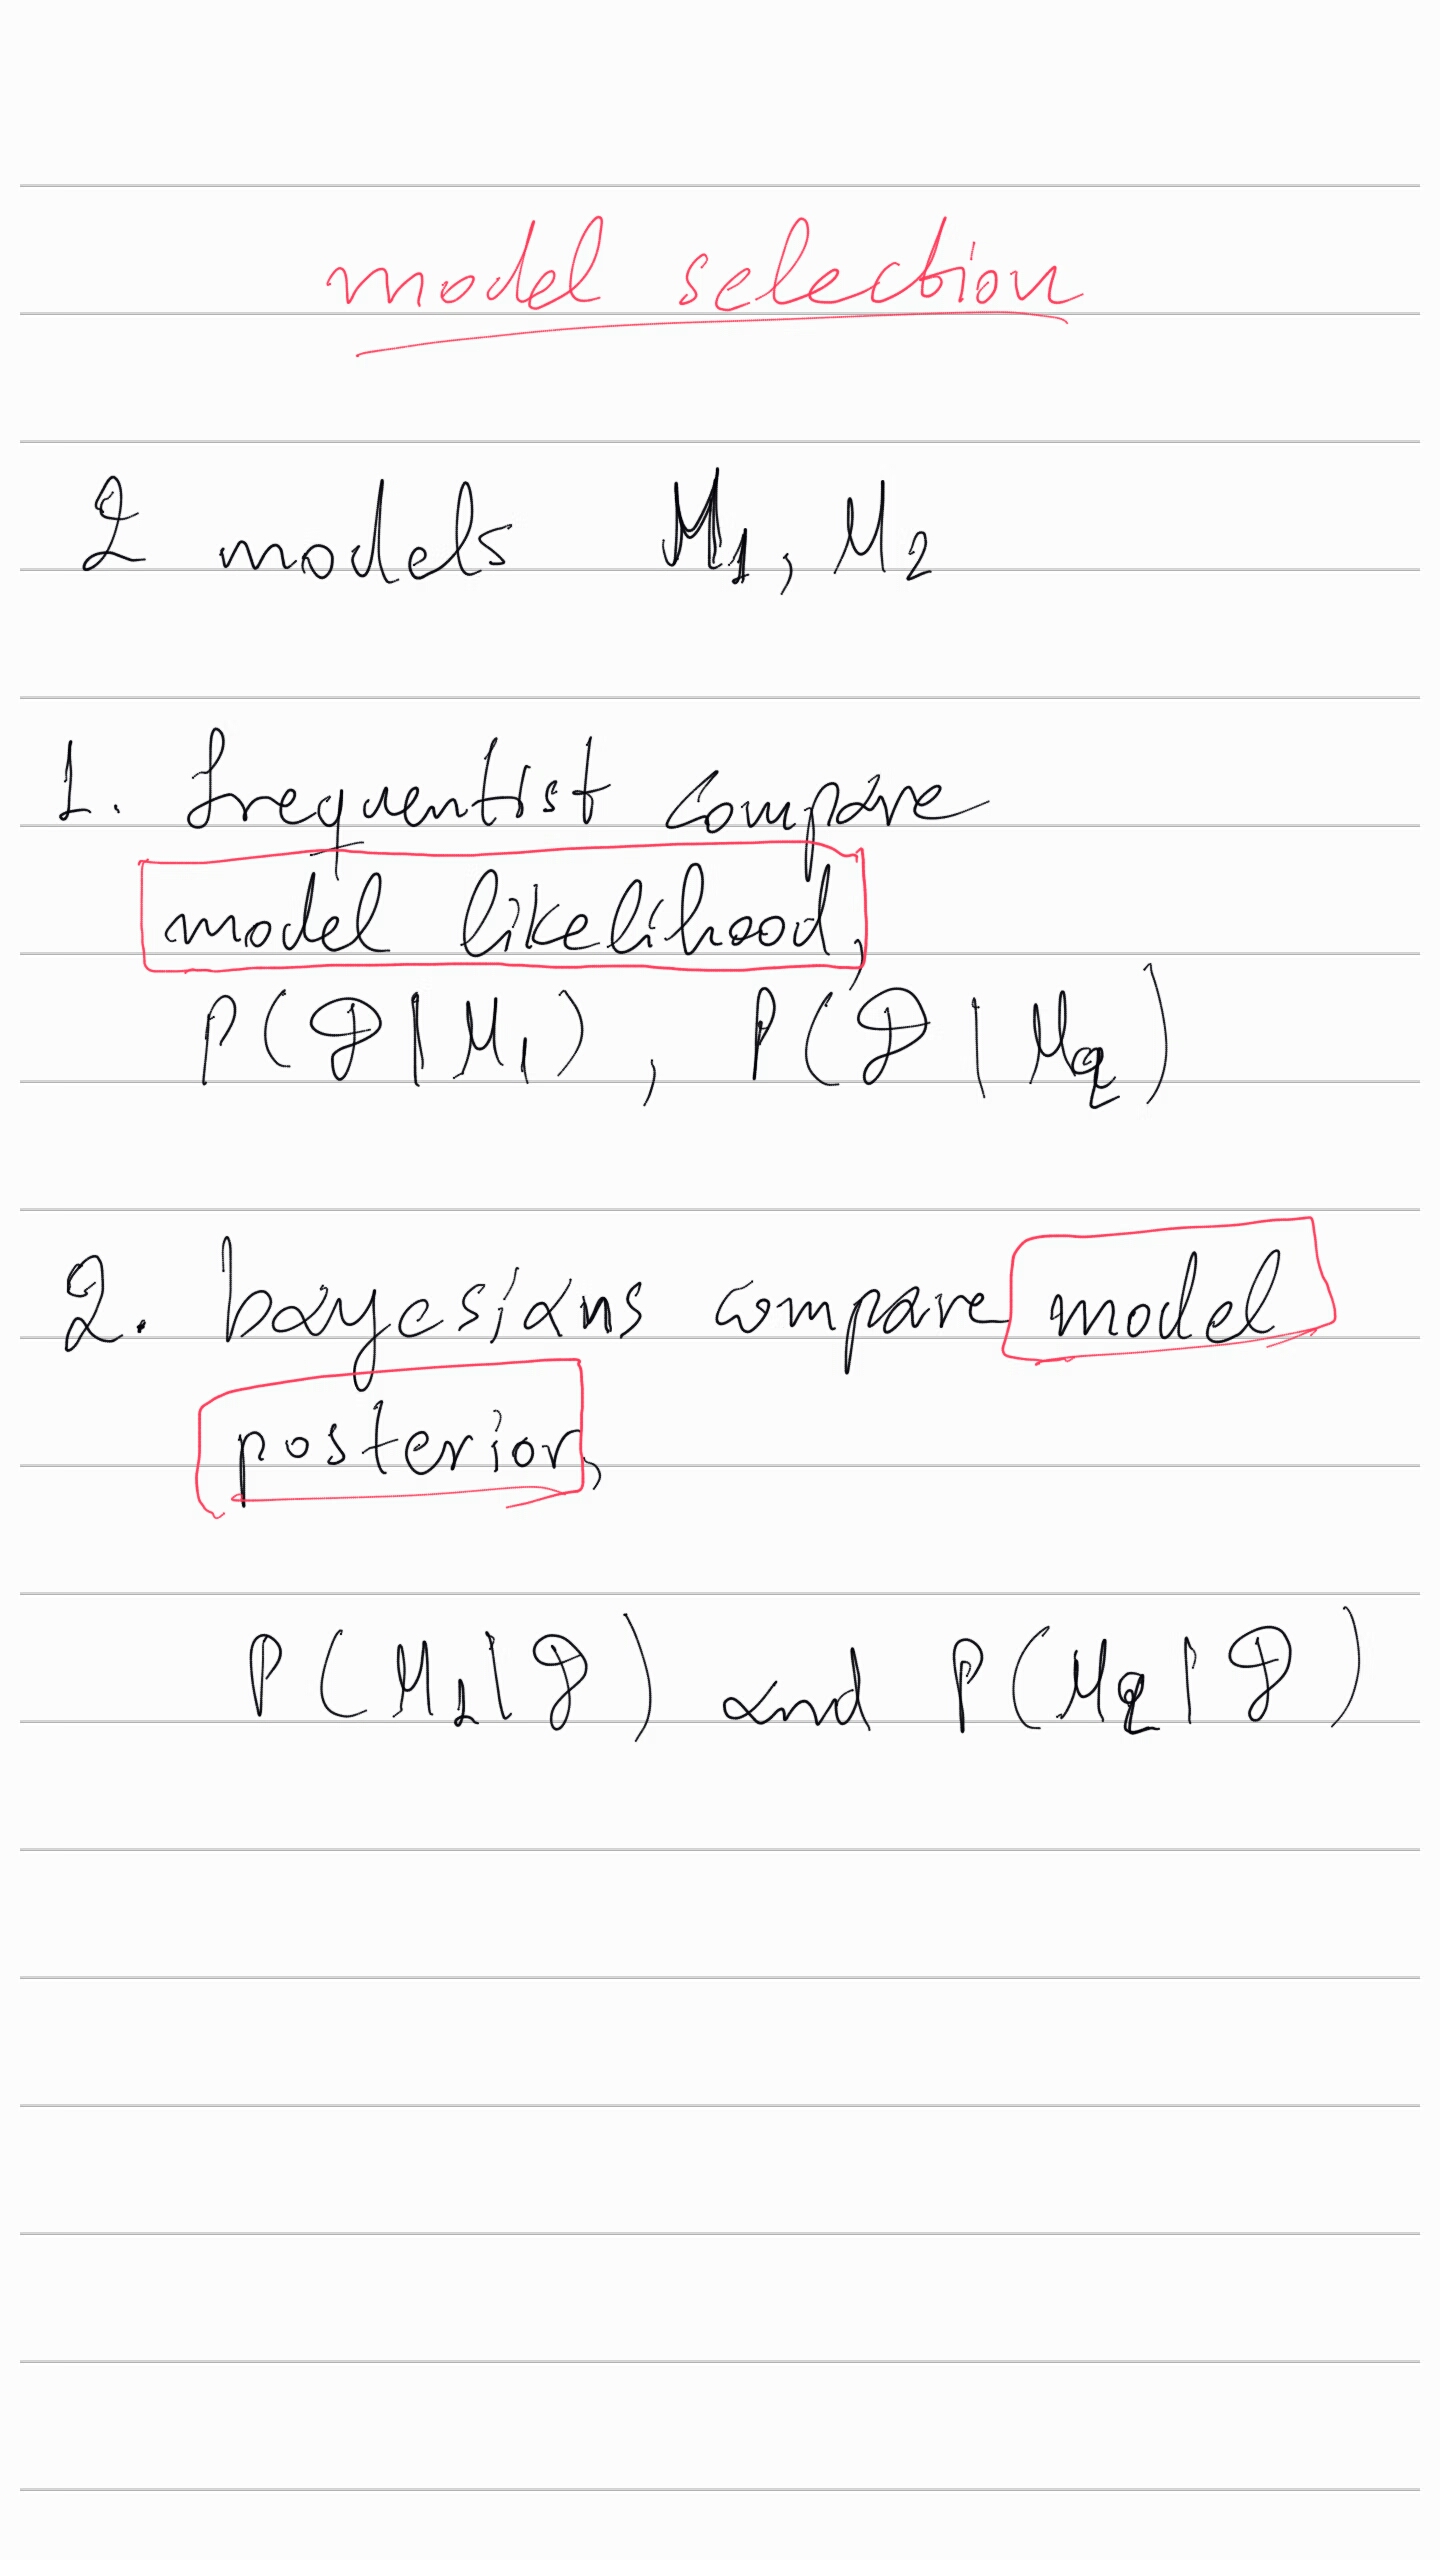 model selection
2 models M₁, M₂
1. frequentist compare
model likelihood,
P(D | M₁), P(D | M₂)
2. bayesians compare model
posterior,
P(M₁ | D) and P(M₂ | D)